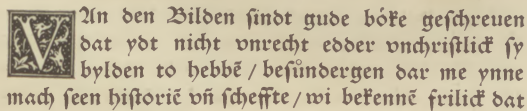 VAn den Bilden ſindt gude bo̍ke geſchreuen
dat ydt nicht vnrecht edder vnchriſtlick ſy
bylden to hebbē / beſu̍ndergen dar me ynne
mach ſeen hiſtoriē vn̄ ſcheffte / wi bekennē frilick dat